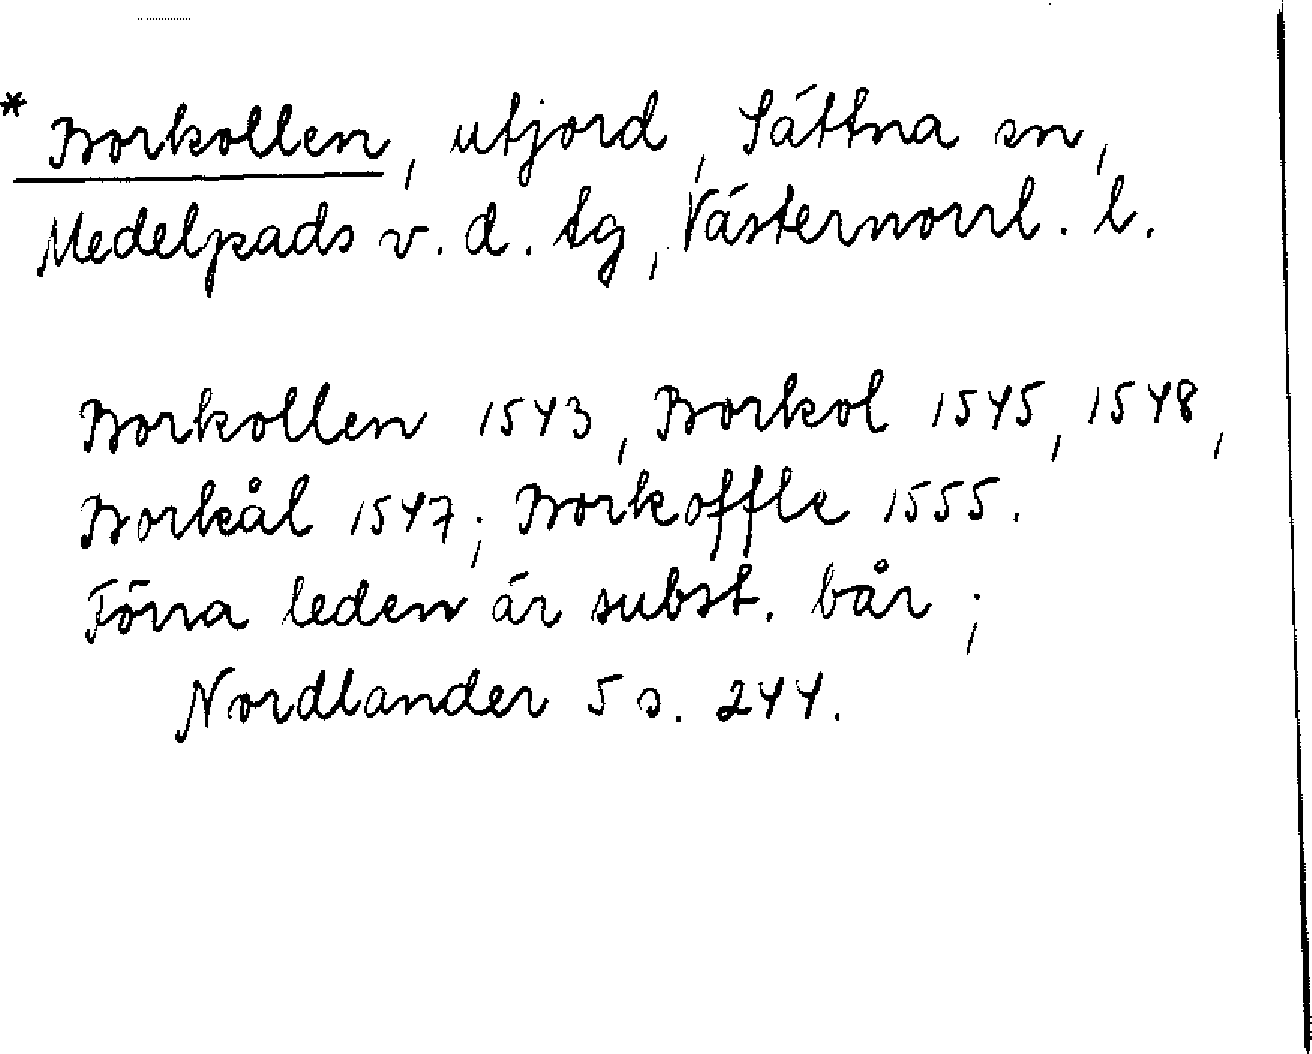 * Borkollen, utjord, Sättna sn,
Medelpads v. d. tg, Västernorrl. l.
Borkollen 1543, Borkol 1545, 1548,
Borkål 1547; Borkoffle 1555.
Förra leden är subst. bår;
Nordlander 5 s. 244.